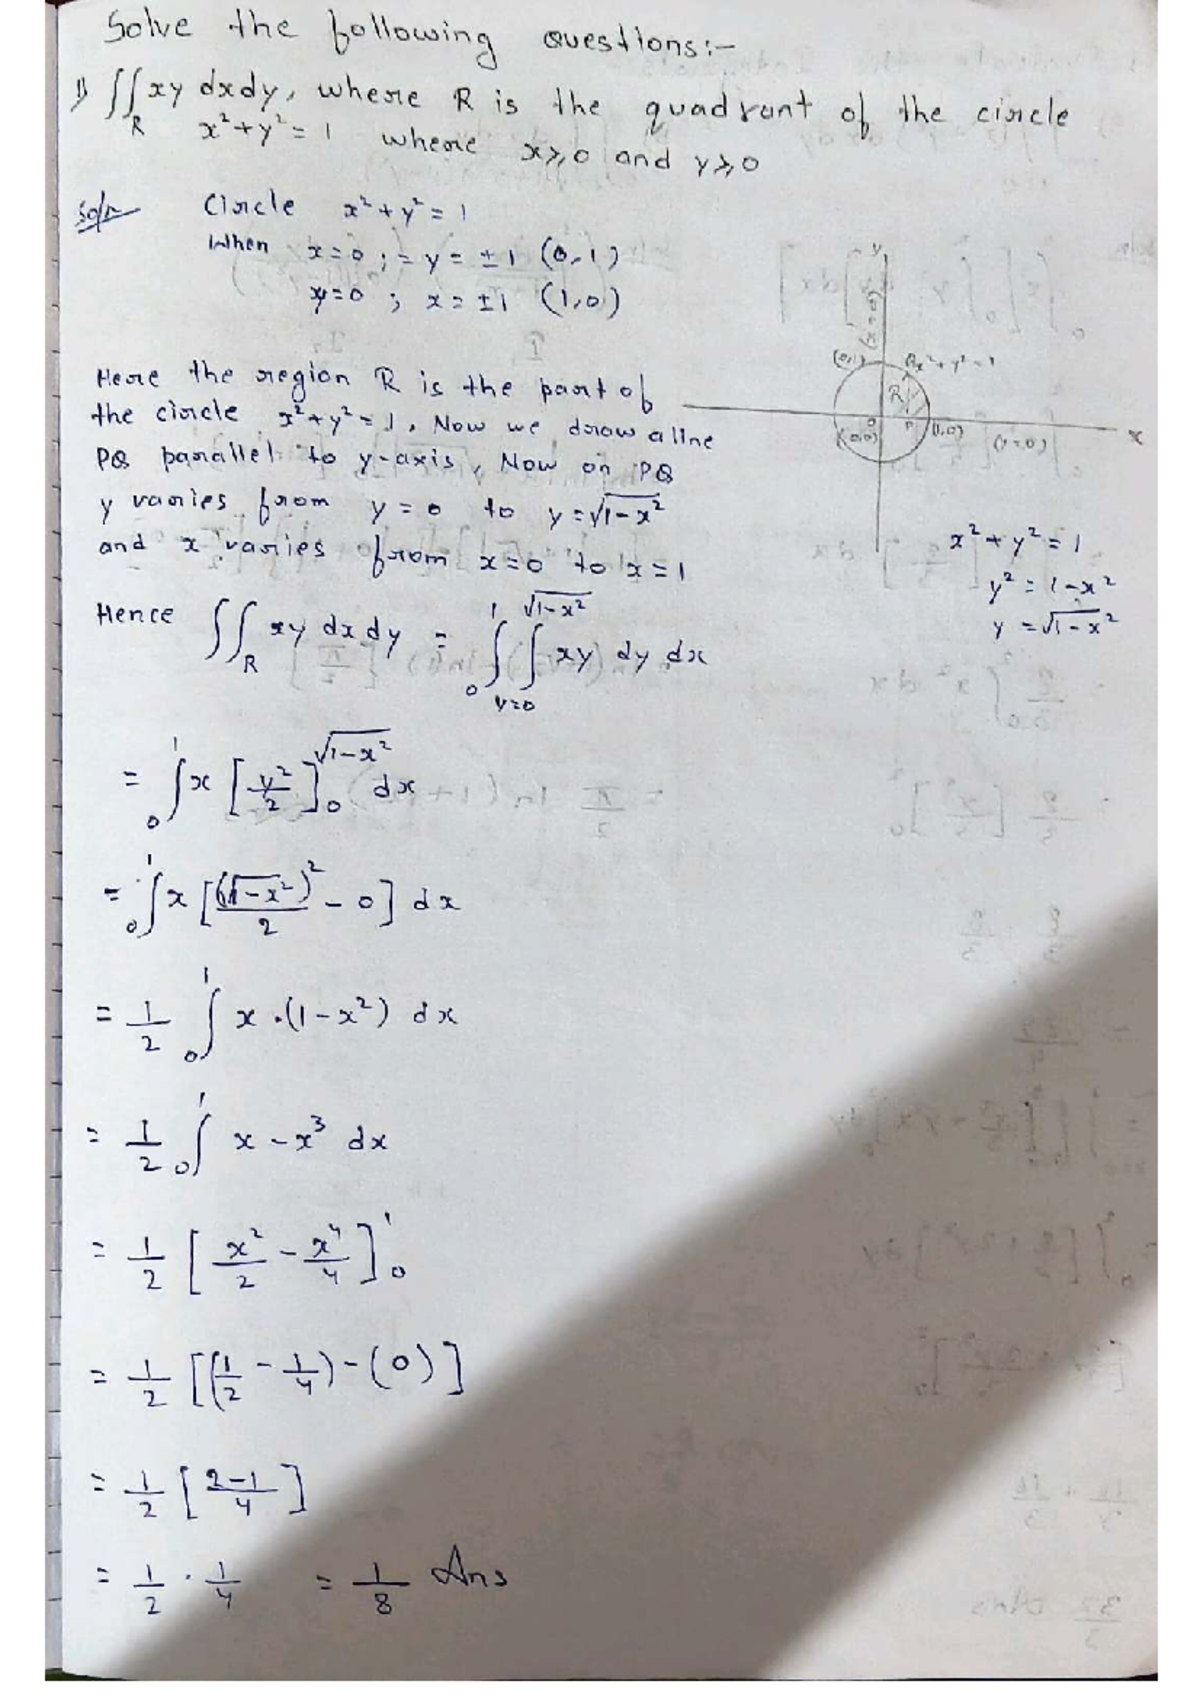 Solve the following Questions:-
1) ∬_R xy dxdy, where R is the quadrant of the circle
x²+y²=1 where x≥0 and y≥0
Soln Circle x²+y²=1
When x=0 ; = y = ±1 (0,1)
y=0 ; x = ±1 (1,0)
y
(x=0)
(0,1) Q x²+y²=1
R
0 P
(0,0) (1,0) (y=0) x
Here the region R is the part of
the circle x²+y²=1. Now we draw a line
PQ parallel to y-axis, Now on PQ
y varies from y=0 to y=√1-x²
and x varies from x=0 to x=1
x²+y²=1
y² = 1-x²
y = √1-x²
Hence ∬_R xy dxdy = ∫_0^1 ∫_{y=0}^{√1-x²} xy dy dx
= ∫_0^1 x [y²/2]_0^{√1-x²} dx
= ∫_0^1 x [(√1-x²)²/2 - 0] dx
= 1/2 ∫_0^1 x.(1-x²) dx
= 1/2 ∫_0^1 x - x³ dx
= 1/2 [x²/2 - x⁴/4]_0^1
= 1/2 [(1/2 - 1/4) - (0)]
= 1/2 [2-1/4]
= 1/2 . 1/4 = 1/8 Ans